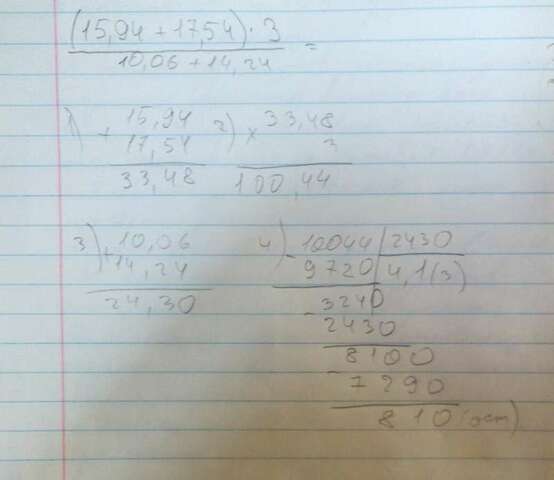 (15,94 + 17,54) · 3
10,06 + 14,24 =
1) + 15,94
17,54
33,48
2) × 33,48
3
100,44
3) + 10,06
14,24
24,30
4) - 10044 | 2430
9720 | 4,1(3)
- 3240
2430
- 8100
7290
810 (ост)